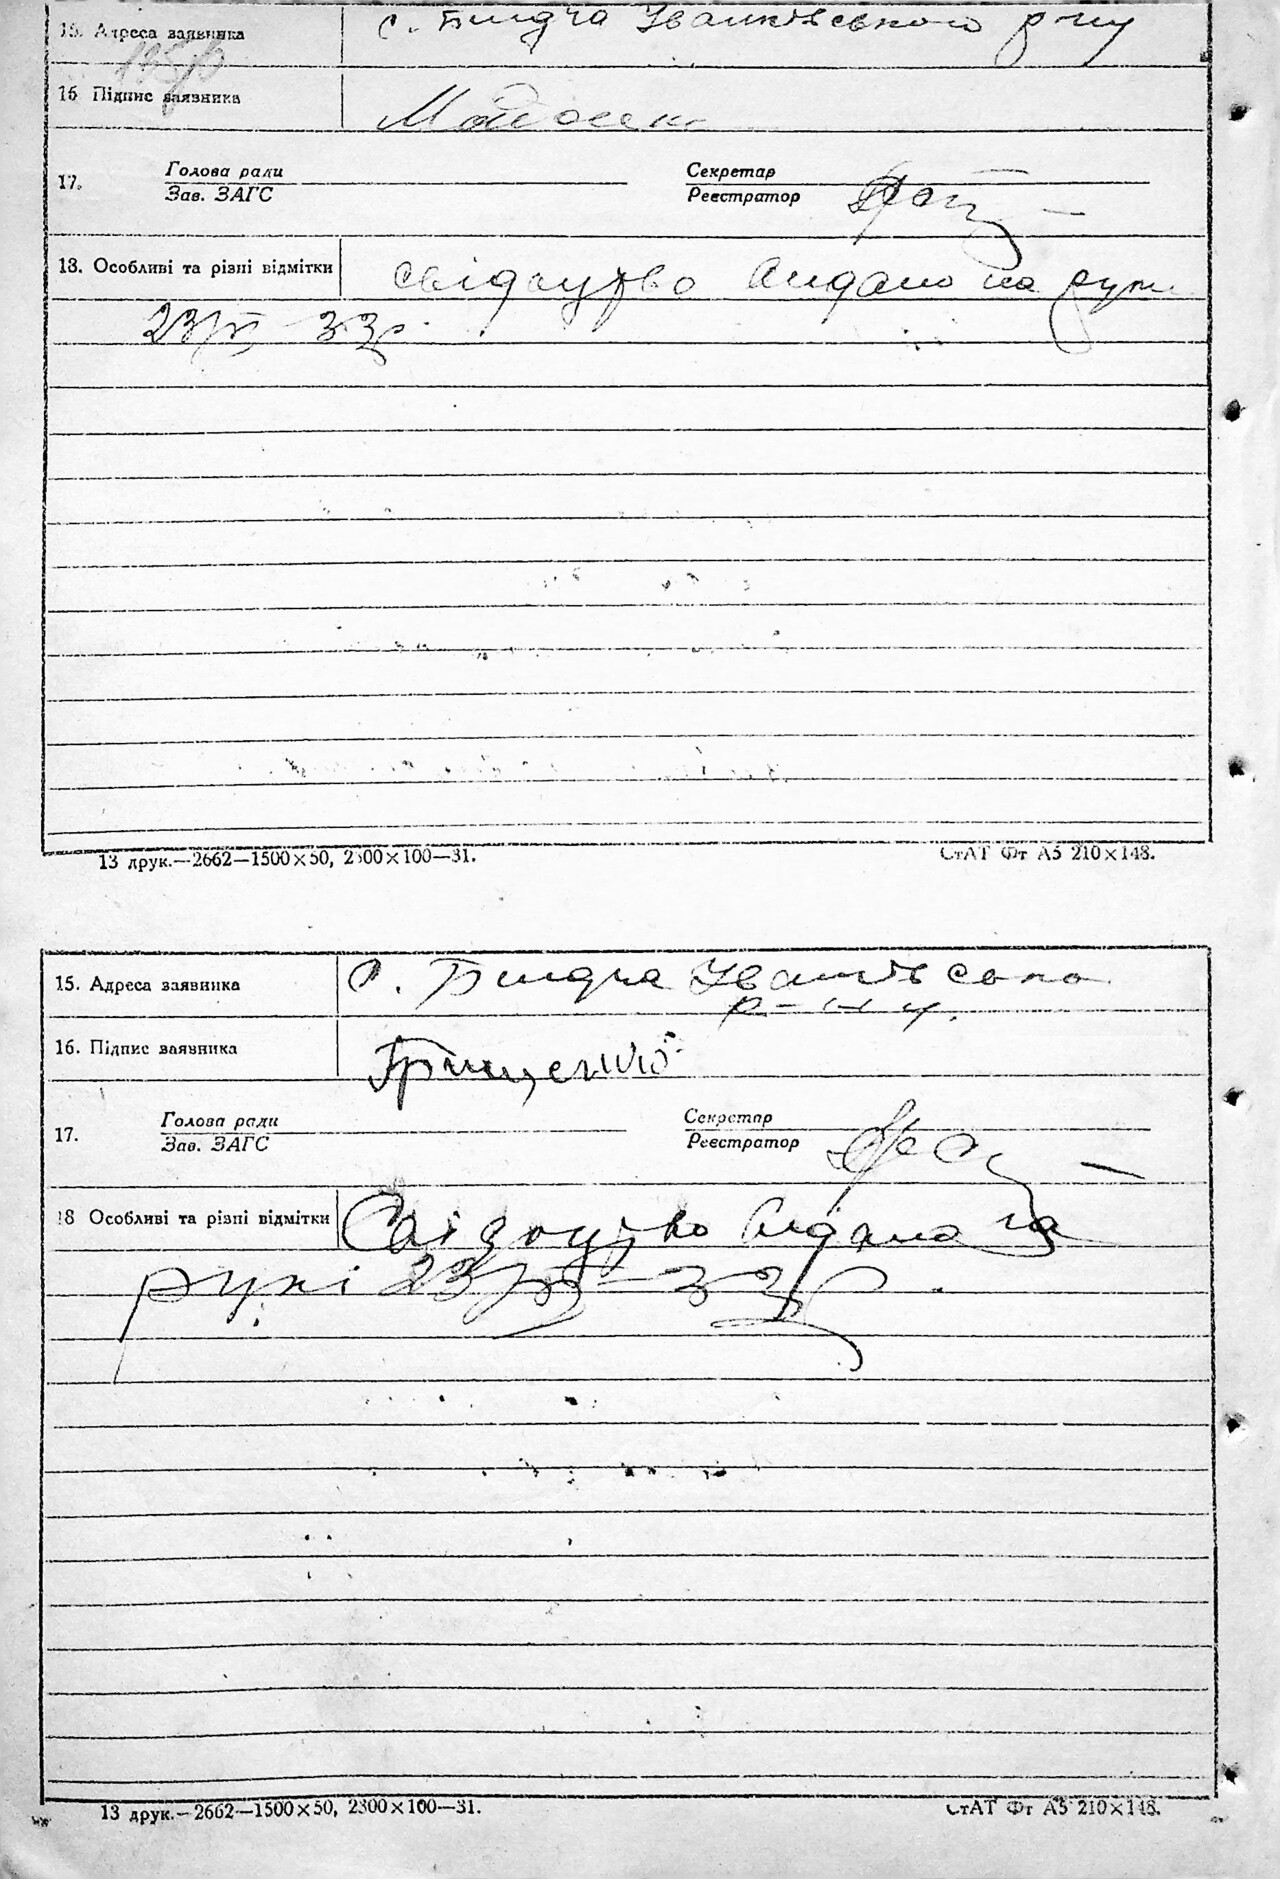 15. Адреса заявника с. Блидча Іванківського р-ну
16 Підпис заявника
17. Голова ради Секретар
Зав. ЗАГС Реєстратор
18. Особливі та різні відмітки свідоцтво видано на руки
23/ 33р.
13 друк.—2662—1500×50, 2300×100—31. СтАТ Фт А5 210×148.
15. Адреса заявника с. Блидча Іванківсько
р-ну.
16. Підпис заявника Грищенко
17. Голова ради Секретар
Зав. ЗАГС Реєстратор
18 Особливі та різні відмітки Свідоцтво видано на
рукі 23/ — 33р.
13 друк.—2662—1500×50, 2300×100—31. СтАТ Фт А5 210×148.